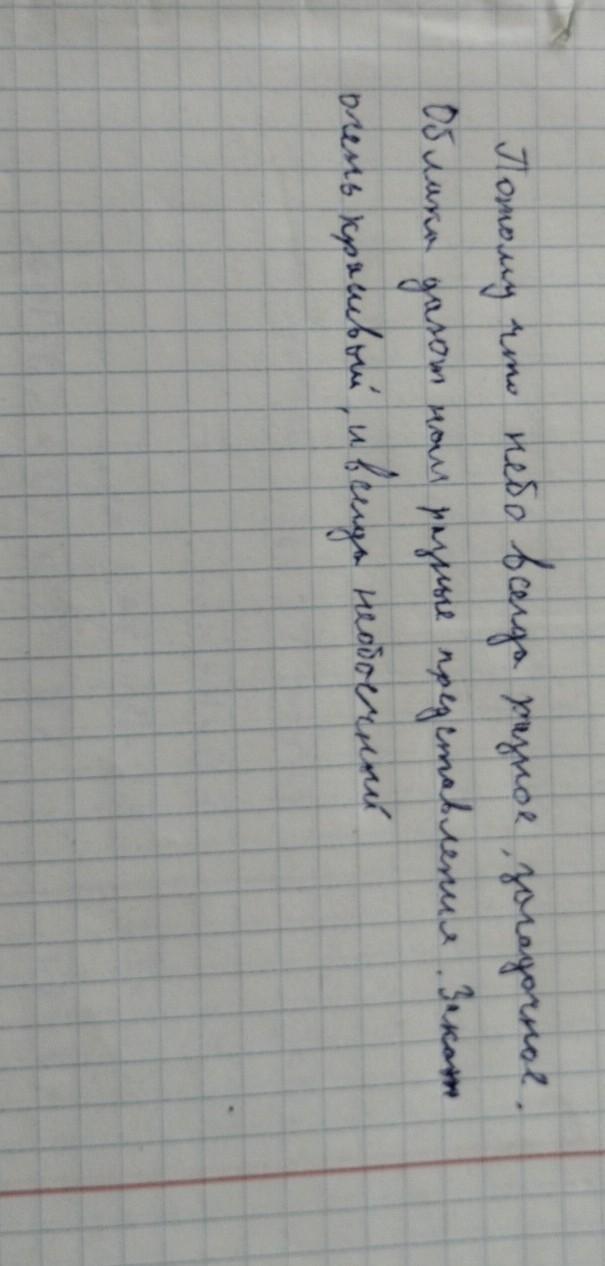 Потому что небо всегда разное, загадочное.
Облака дают нам разные представления. Закат
очень красивый, и всегда необычный